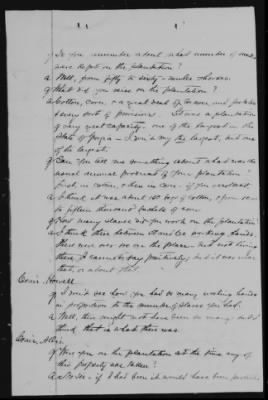 q Do you remember about what number of mules
were kept on the plantation?
a Well, from fifty to sixty – mules & horses.
q What did you raise on the plantation?
a Cotton, corn, & a great deal of bacon, and
every sort of provisions. It was a plantation
of very great capacity, one of the largest in the
State of Georgia – I won't say the largest, but one
of the largest.
q Can you tell me something about what was the
usual annual product of your plantation?
first, in cotton, & then in corn – if you recollect.
a I think it was about 150 bags of cotton, &
to fifteen thousand bushels of corn.
q How many slaves did you work on the plantation
a I think there between working hands.
There were over 100 on the place – but not being
there I cannot say positively, but it was near
that, or about that.
Com. Howell
q I don't see how you had so many working hands
in proportion to the number of slaves you had.
a Well, there might not have been so many – but I
think that is what there was.
q Were you on the plantation at the time any of
this property was taken?
a No sir – if I had been it would have been